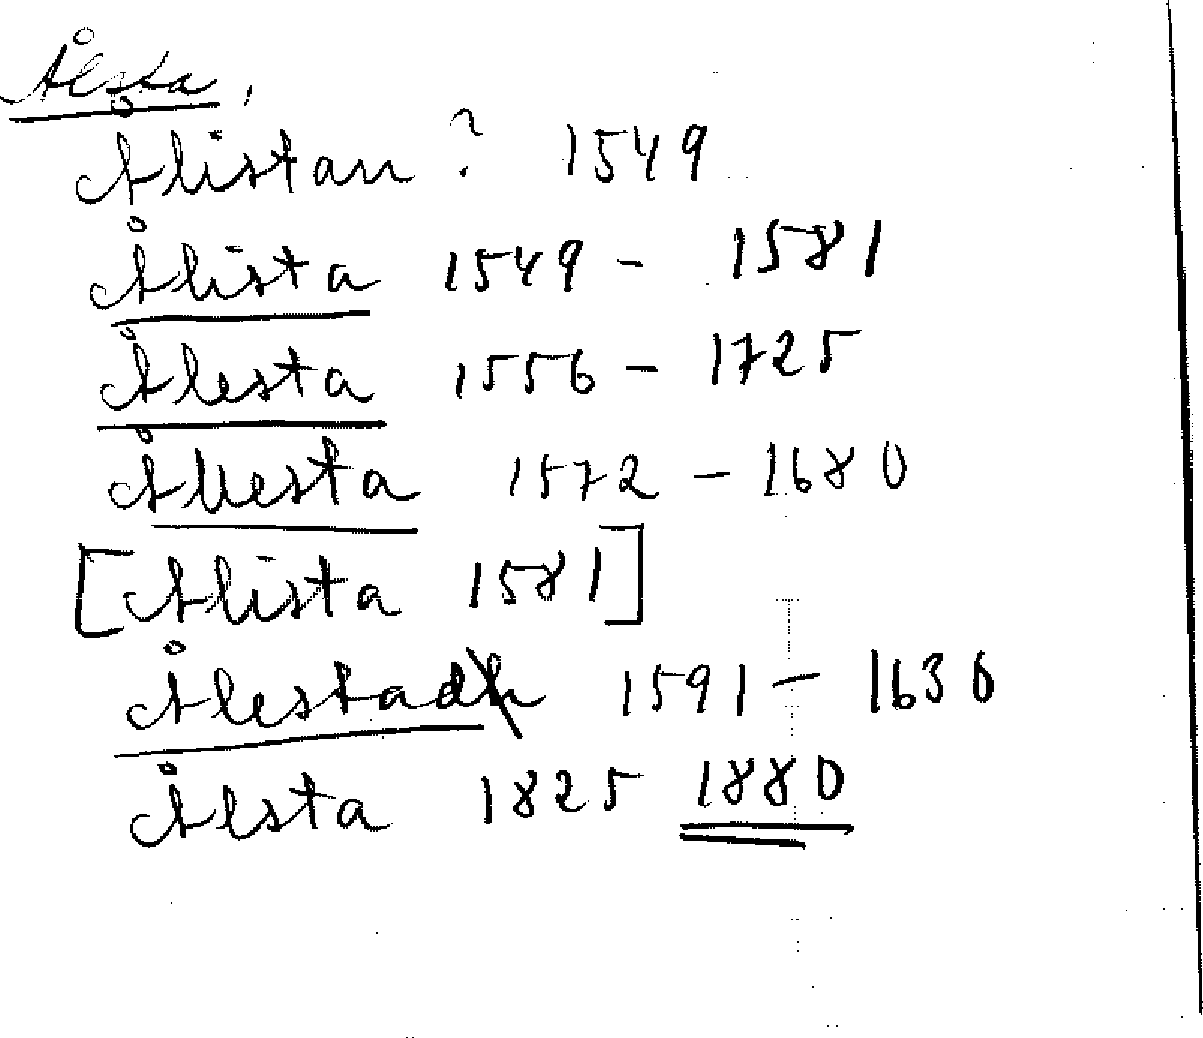 Ålsta,
Ålistan? 1549
Ålista 1549 - 1581
Ålesta 1556 - 1725
Ållesta 1572 - 1680
[Alista 1581]
Ålestad 1591 - 1630
Ålsta 1825 1880